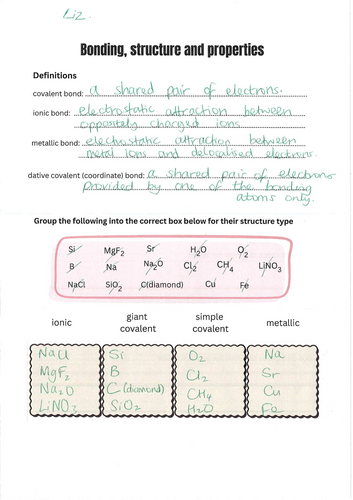 Liz.
Bonding, structure and properties
Definitions
covalent bond: a shared pair of electrons.
ionic bond: electrostatic attraction between
oppositely charged ions
metallic bond: electrostatic attraction between
metal ions and delocalised electrons.
dative covalent (coordinate) bond: a shared pair of electrons
provided by one of the bonding
atoms only.
Group the following into the correct box below for their structure type
Si MgF₂ Sr H₂O O₂
B Na Na₂O Cl₂ CH₄ LiNO₃
NaCl SiO₂ C(diamond) Cu Fe
ionic giant covalent simple covalent metallic
NaCl Si O₂ Na
MgF₂ B Cl₂ Sr
Na₂O C(diamond) CH₄ Cu
LiNO₃ SiO₂ H₂O Fe